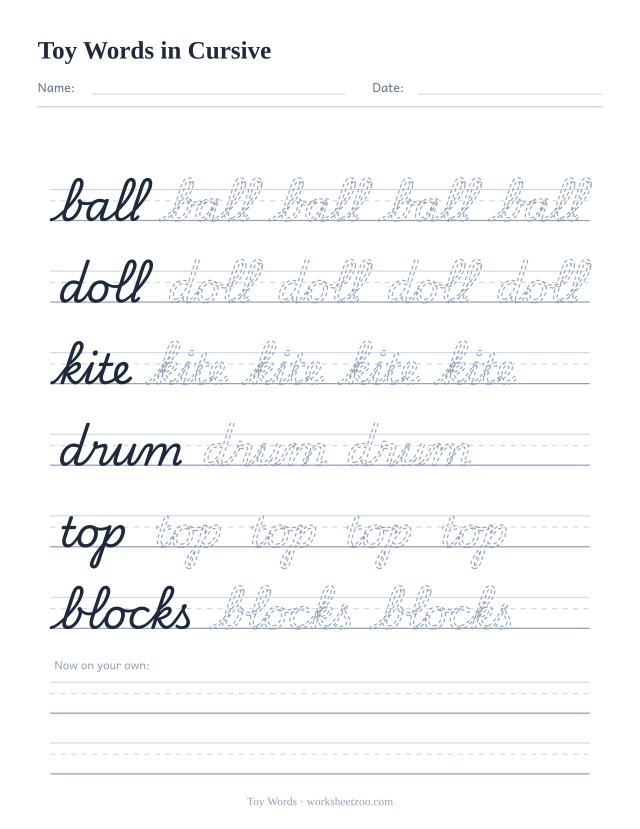 Toy Words in Cursive
Name: Date:
ball ball ball ball ball
doll doll doll doll doll
kite kite kite kite kite
drum drum drum
top top top top top
blocks blocks blocks
Now on your own:
Toy Words · worksheetzoo.com